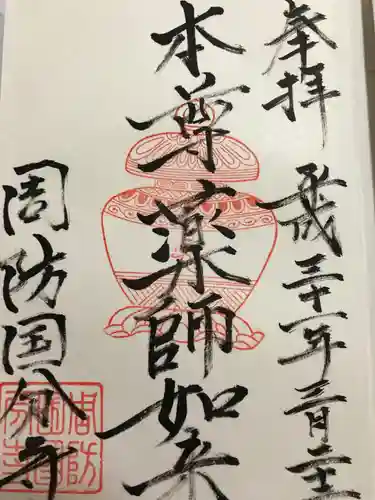 奉拝 平成三十一年三月二十二
本尊薬師如来
周防国分寺
周防国分寺